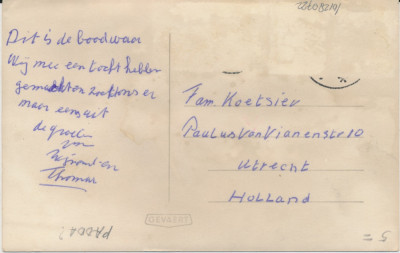 Dit is de boot waar
Wij mee een tocht hebben
gemaakt en zoek ons er
maar eens uit
de groeten
van
en
Thomas
Fam Koetsier
Paulus van Vianenstr 10
Utrecht
Holland
GEVAERT
5 =